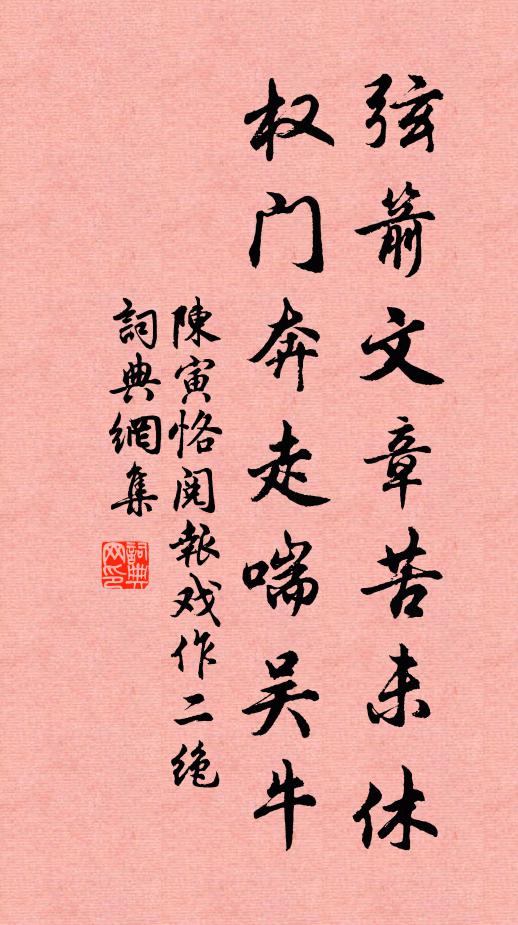 弦箭文章苦未休
权门奔走喘吴牛
陳寅恪阅報戏作二绝
詞典網集
詞典网印